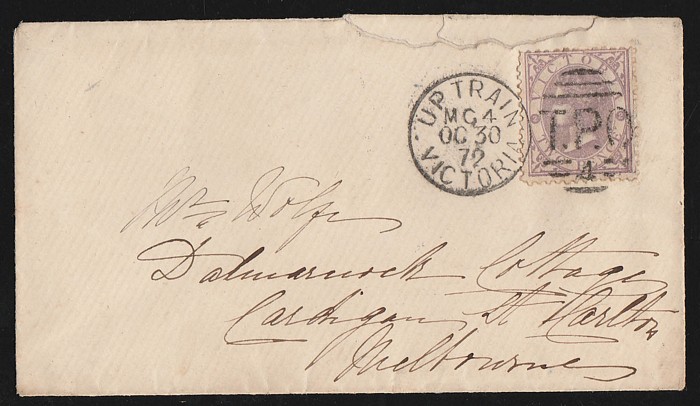 UP TRAIN
MG 4
OC 30
72
VICTORIA
VICTORIA
T.P.O
4
Mrs Wolfe
Dalmarnock Cottage
Cardigan St Carlton
Melbourne